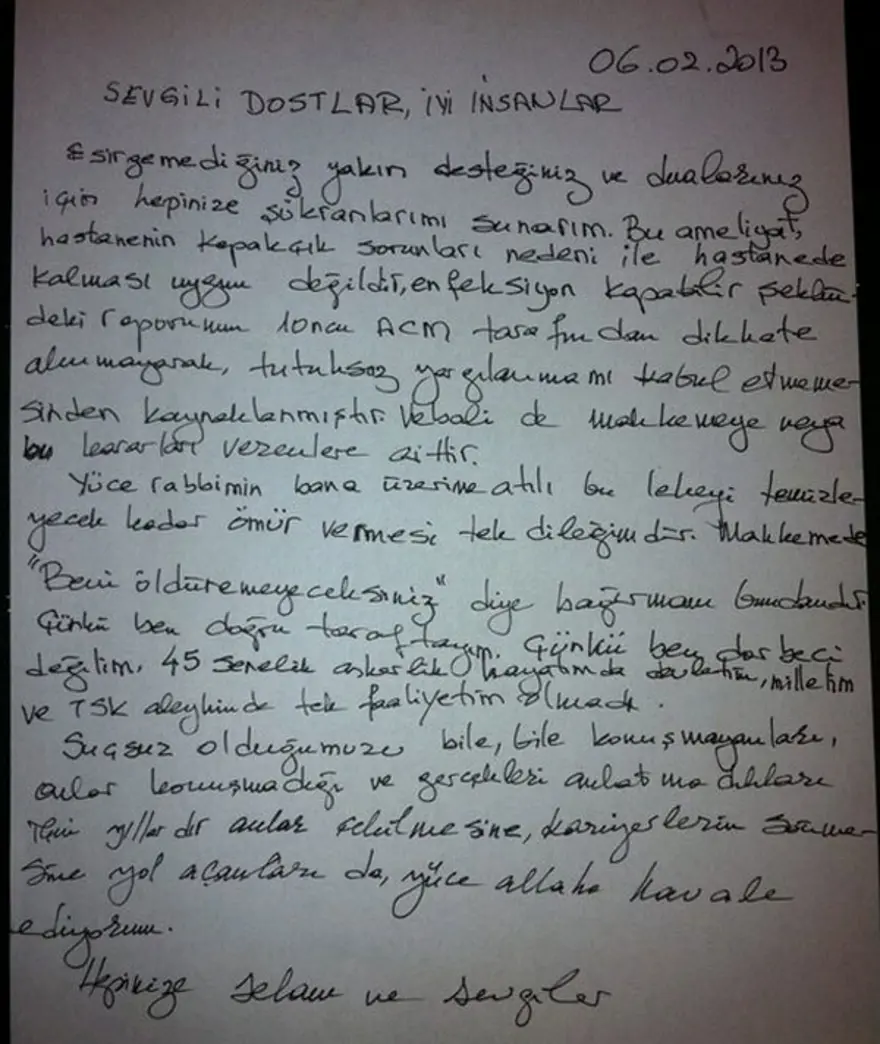 06.02.2013
SEVGİLİ DOSTLAR, İYİ İNSANLAR
Esirgemediğiniz yakın desteğiniz ve dualarınız
için hepinize şükranlarımı sunarım. Bu ameliyat,
hastanenin kapakçık sorunları nedeni ile hastanede
kalması uygun değildir, enfeksiyon kapabilir şeklin-
deki raporunun 10ncu ACM tarafından dikkate
alınmayarak, tutuksuz yargılanmamı kabul etmeme-
sinden kaynaklanmıştır. Vebali de mahkemeye veya
bu kararları verenlere aittir.
Yüce rabbimin bana üzerime atılı bu lekeyi temizle-
yecek kadar ömür vermesi tek dileğimdir. Mahkemede
"Beni öldüremeyeceksiniz" diye bağırmam bundandır.
Çünkü ben doğru taraftayım. Çünkü ben darbeci
değilim, 45 senelik askerlik hayatımda devletim, milletim
ve TSK aleyhinde tek faaliyetim olmadı.
Suçsuz olduğumuzu bile, bile konuşmayanları,
onlar konuşmadığı ve gerçekleri anlatmadıkları
için yıllardır acılar çekilmesine, kariyerlerin sönme-
sine yol açanları da, yüce allaha havale
ediyorum.
Hepinize selam ve sevgiler